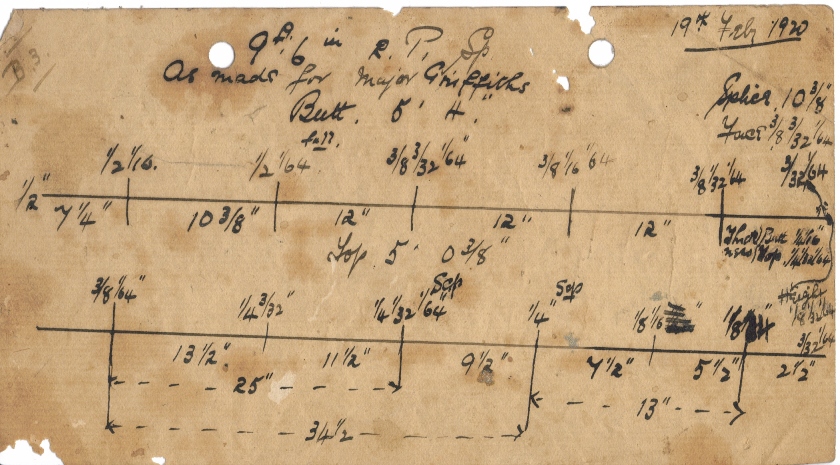 19th Feby 1920
B.3.
9 ft. 6 in R. P. Sp
As made for Major Griffiths
Butt. 5' 4."
Splice 10 3/8"
Face 3/8 3/32 1/64
full.
1/2 1/16. 1/2 1/64 3/8 3/32 1/64" 3/8 1/16 1/64 3/8 1/32 1/64 3/32 1/64
1/2"
7 1/4" 10 3/8" 12" 12" 12"
Top 5' 0 3/8"
Butt 1/4 1/16"
Top
Sop Sop
3/8 1/64" 1/4 3/32" 1/4 1/32 1/64" 1/4" 1/8 1/16 " 1/8
3/32 1/64
13 1/2" 11 1/2" 9 1/2" 7 1/2" 5 1/2" 2 1/2"
25"
13"
34 1/2